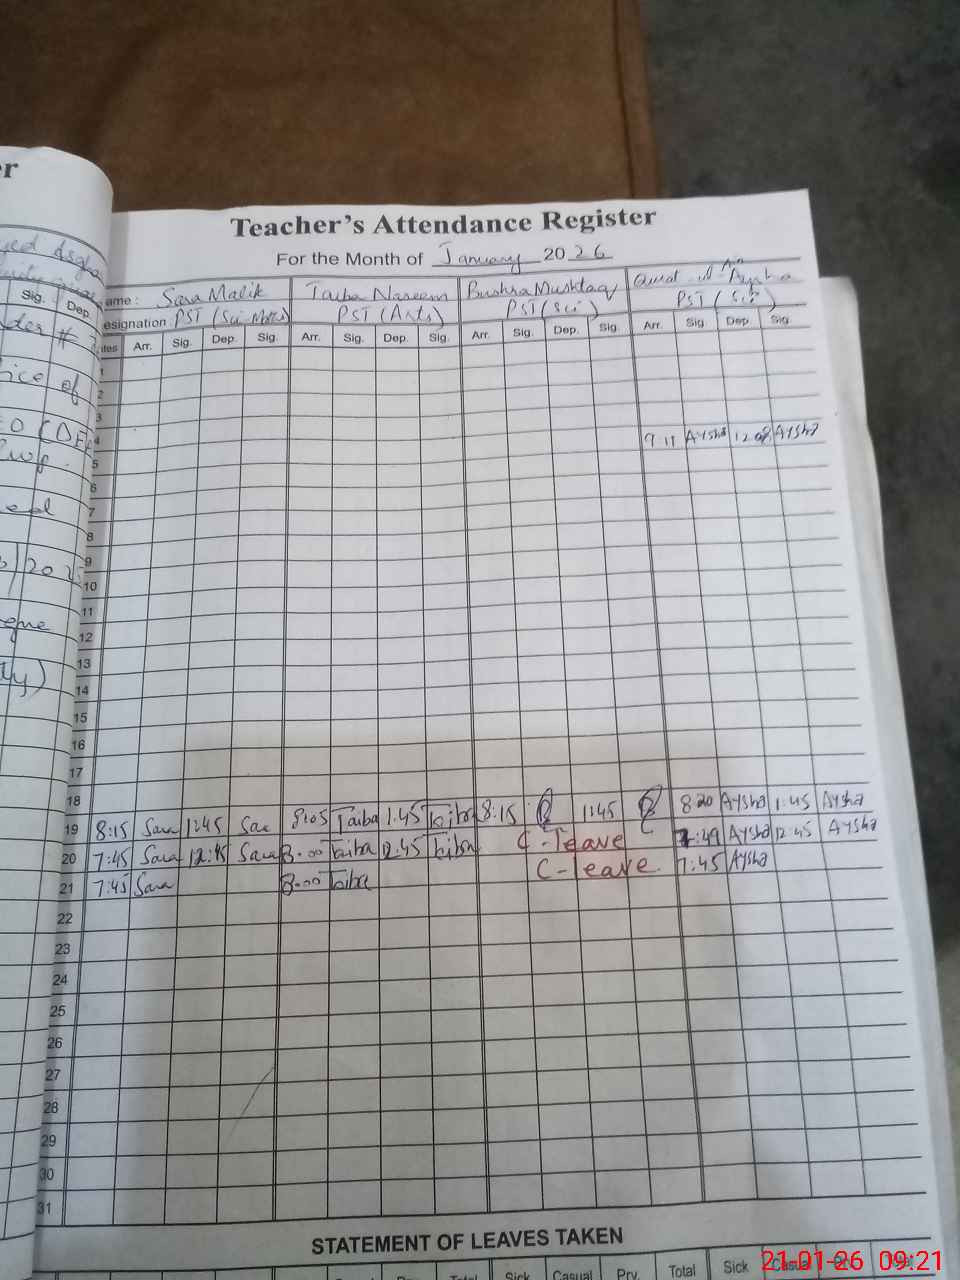 er
Teacher's Attendance Register
For the Month of January 2026
ame : Sara Malik Taiba Naseem Bushra Mushtaq Qurat-ul-Ain Aysha
esignation : PST (Sci-Math) PST (Arts) PST (Sci) PST (Sci)
Sig. Dep.
ates Arr. Sig. Dep. Sig. Arr. Sig. Dep. Sig. Arr. Sig. Dep. Sig. Arr. Sig. Dep. Sig.
1
2
3
4 9:11 Aysha 12:08 Aysha
5
6
7
8
9
10
11
12
13
14
15
16
17
18
19 8:15 Sara 1:45 Sara 8:05 Taiba 1:45 Taiba 8:15 1:45 8:20 Aysha 1:45 Aysha
20 7:45 Sara 12:45 Sara 8:00 Taiba 12:45 Taiba C-leave 7:49 Aysha 12:45 Aysha
21 7:45 Sara 8:00 Taiba C-leave 7:45 Aysha
22
23
24
25
26
27
28
29
30
31
STATEMENT OF LEAVES TAKEN
Total Sick Casual Prv. Total Sick Casual Prv. Total
21-01-26 09:21